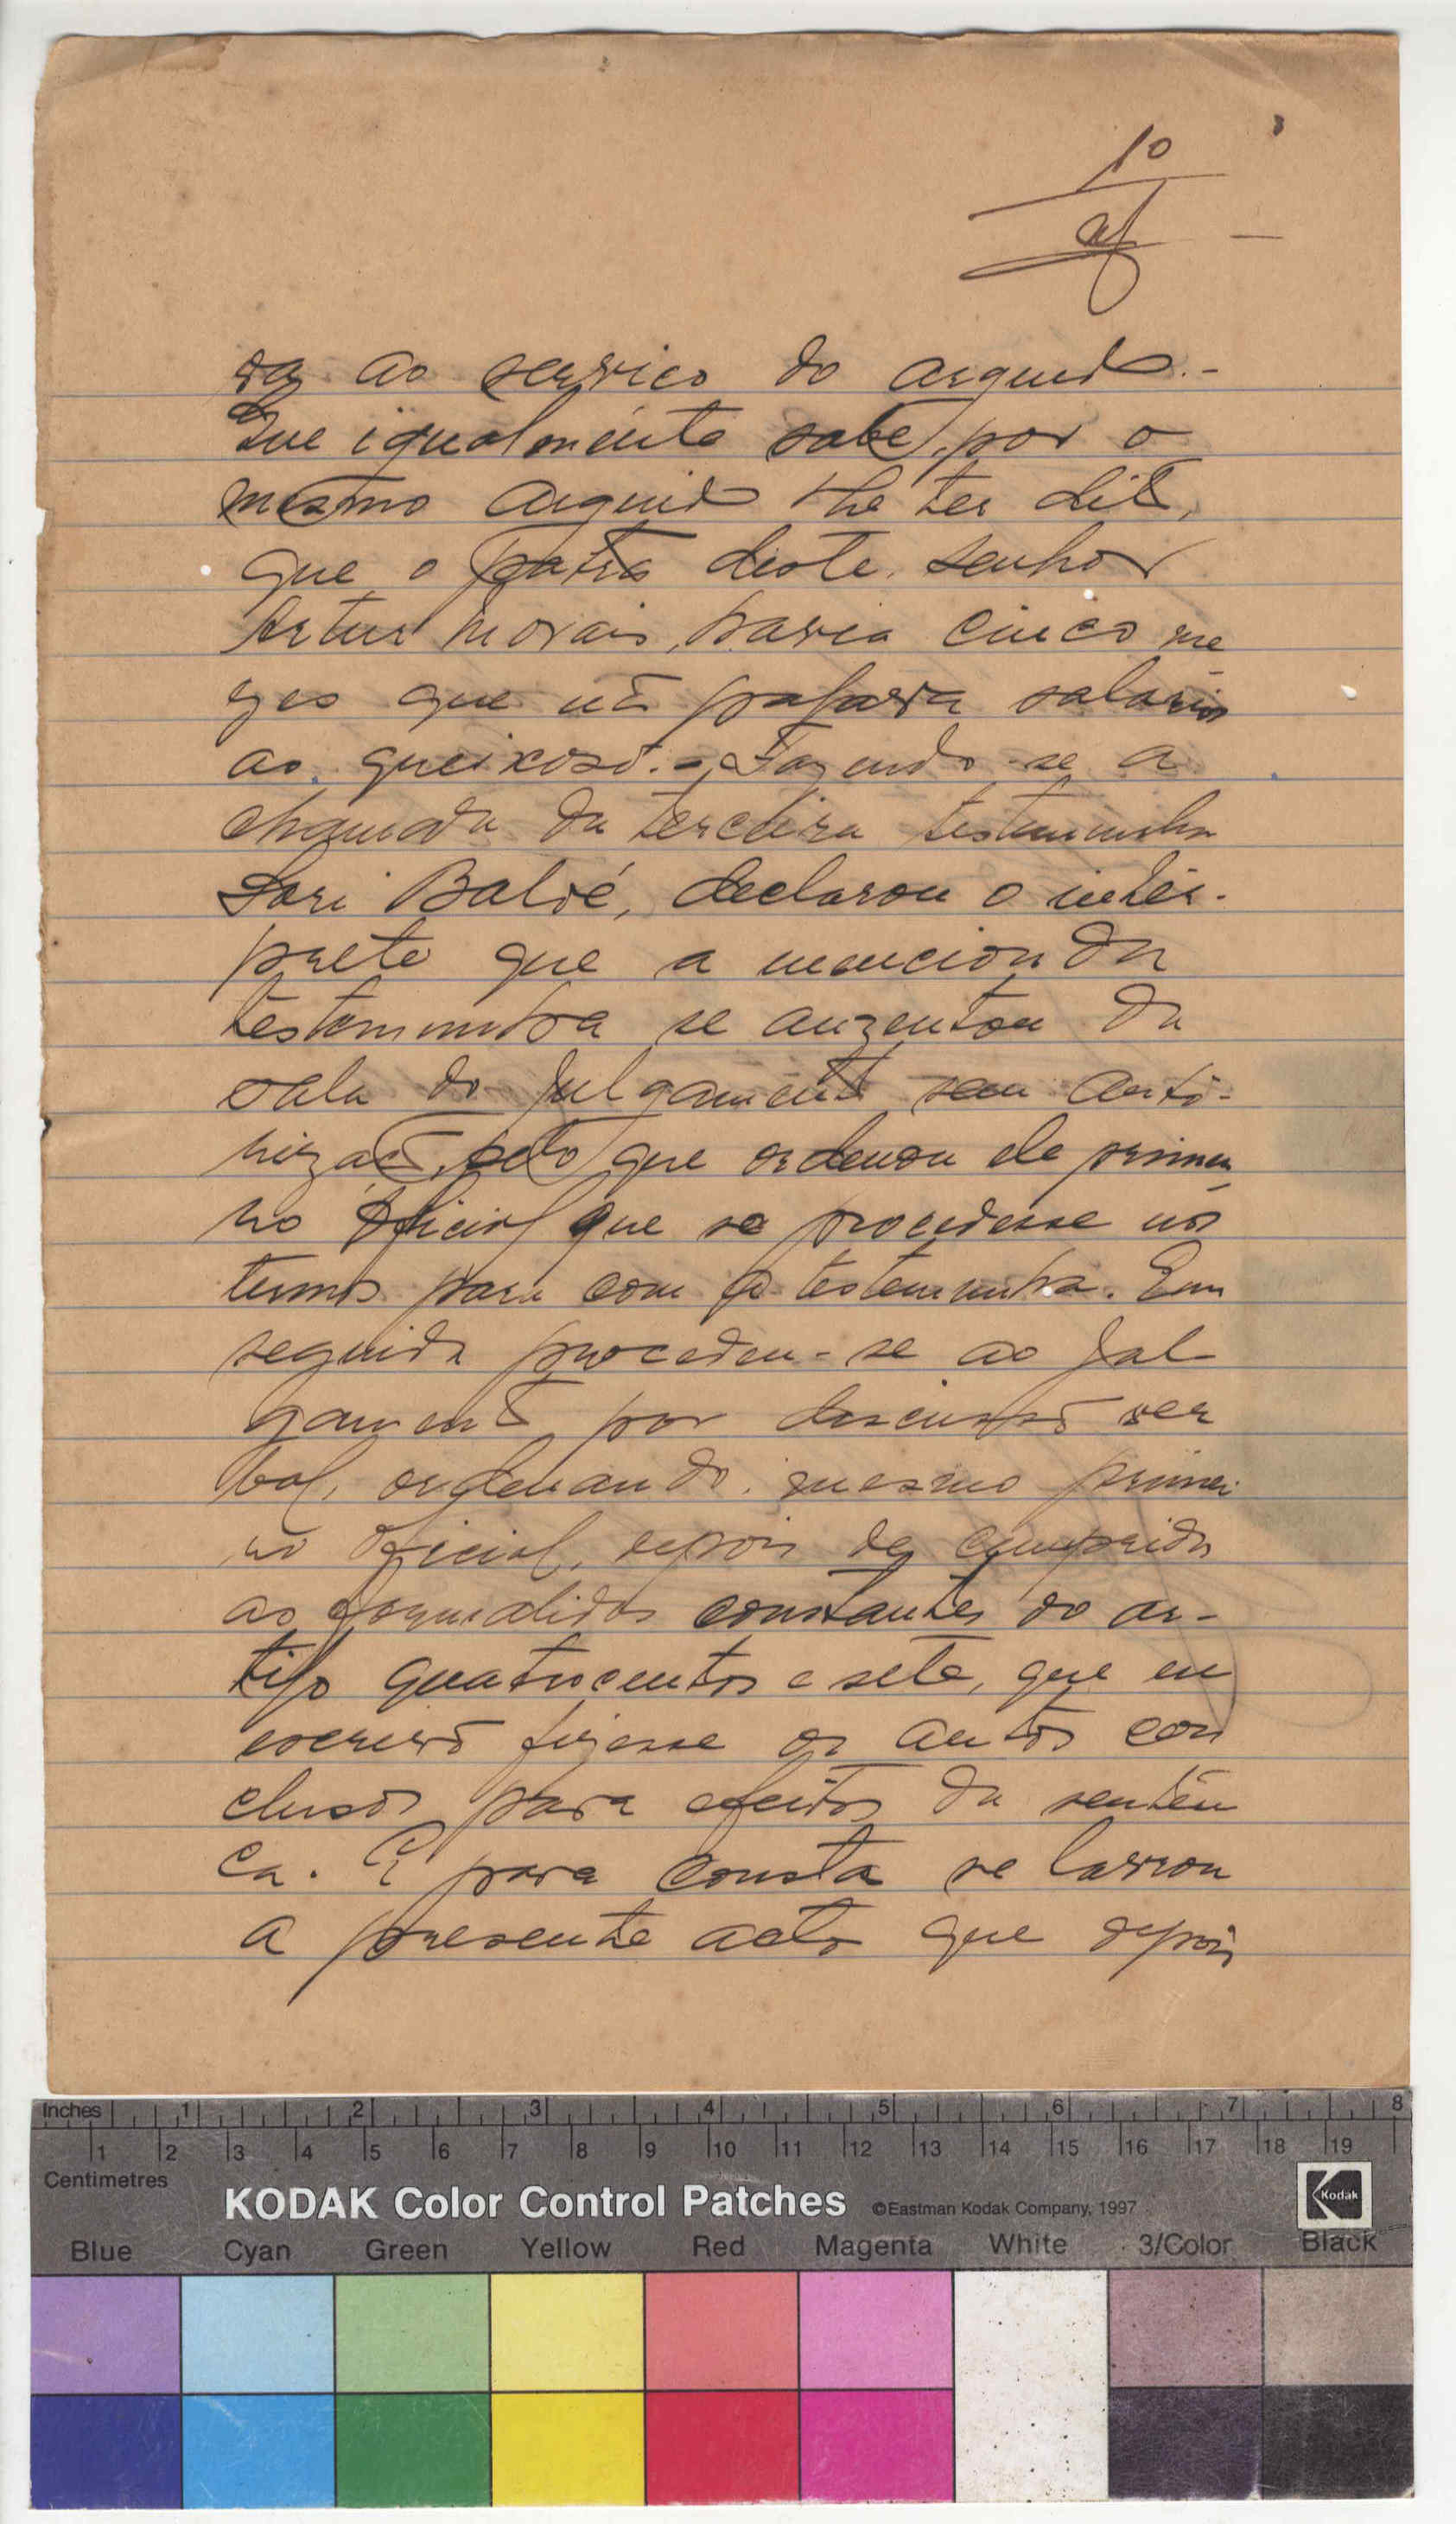 10
va ao serviço do arguido.-
Que igualmente sabe, por o
mesmo arguido lhe ter dito,
que o patrão deste, senhor
Artur Morais, havia cinco me
zes que não pagava salarios
ao queixoso.- Fazendo-se a
chamada da terceira testemunha
Sori Baldé, declarou o intér-
prete que a mencionada
testemunha se auzentou da
sala do julgamento sem auto-
rização, pelo que ordenou ele primei
ro oficial que se procedesse nos
termos para com a testemunha. Em
seguida procedeu-se ao jul
gamento por discussão ver
bal, ordenando, mesmo primei
ro oficial, depois de cumpridas
as formalidades constantes do ar-
tigo quatrocentos e sete, que eu
escrivão fizesse os autos con
clusos para efeitos da senten
ça. E para consta se lavrou
a presente acta que depois
Inches 1 2 3 4 5 6 7 8
1 2 3 4 5 6 7 8 9 10 11 12 13 14 15 16 17 18 19
Centimetres
KODAK Color Control Patches ©Eastman Kodak Company, 1997
Kodak
Blue Cyan Green Yellow Red Magenta White 3/Color Black